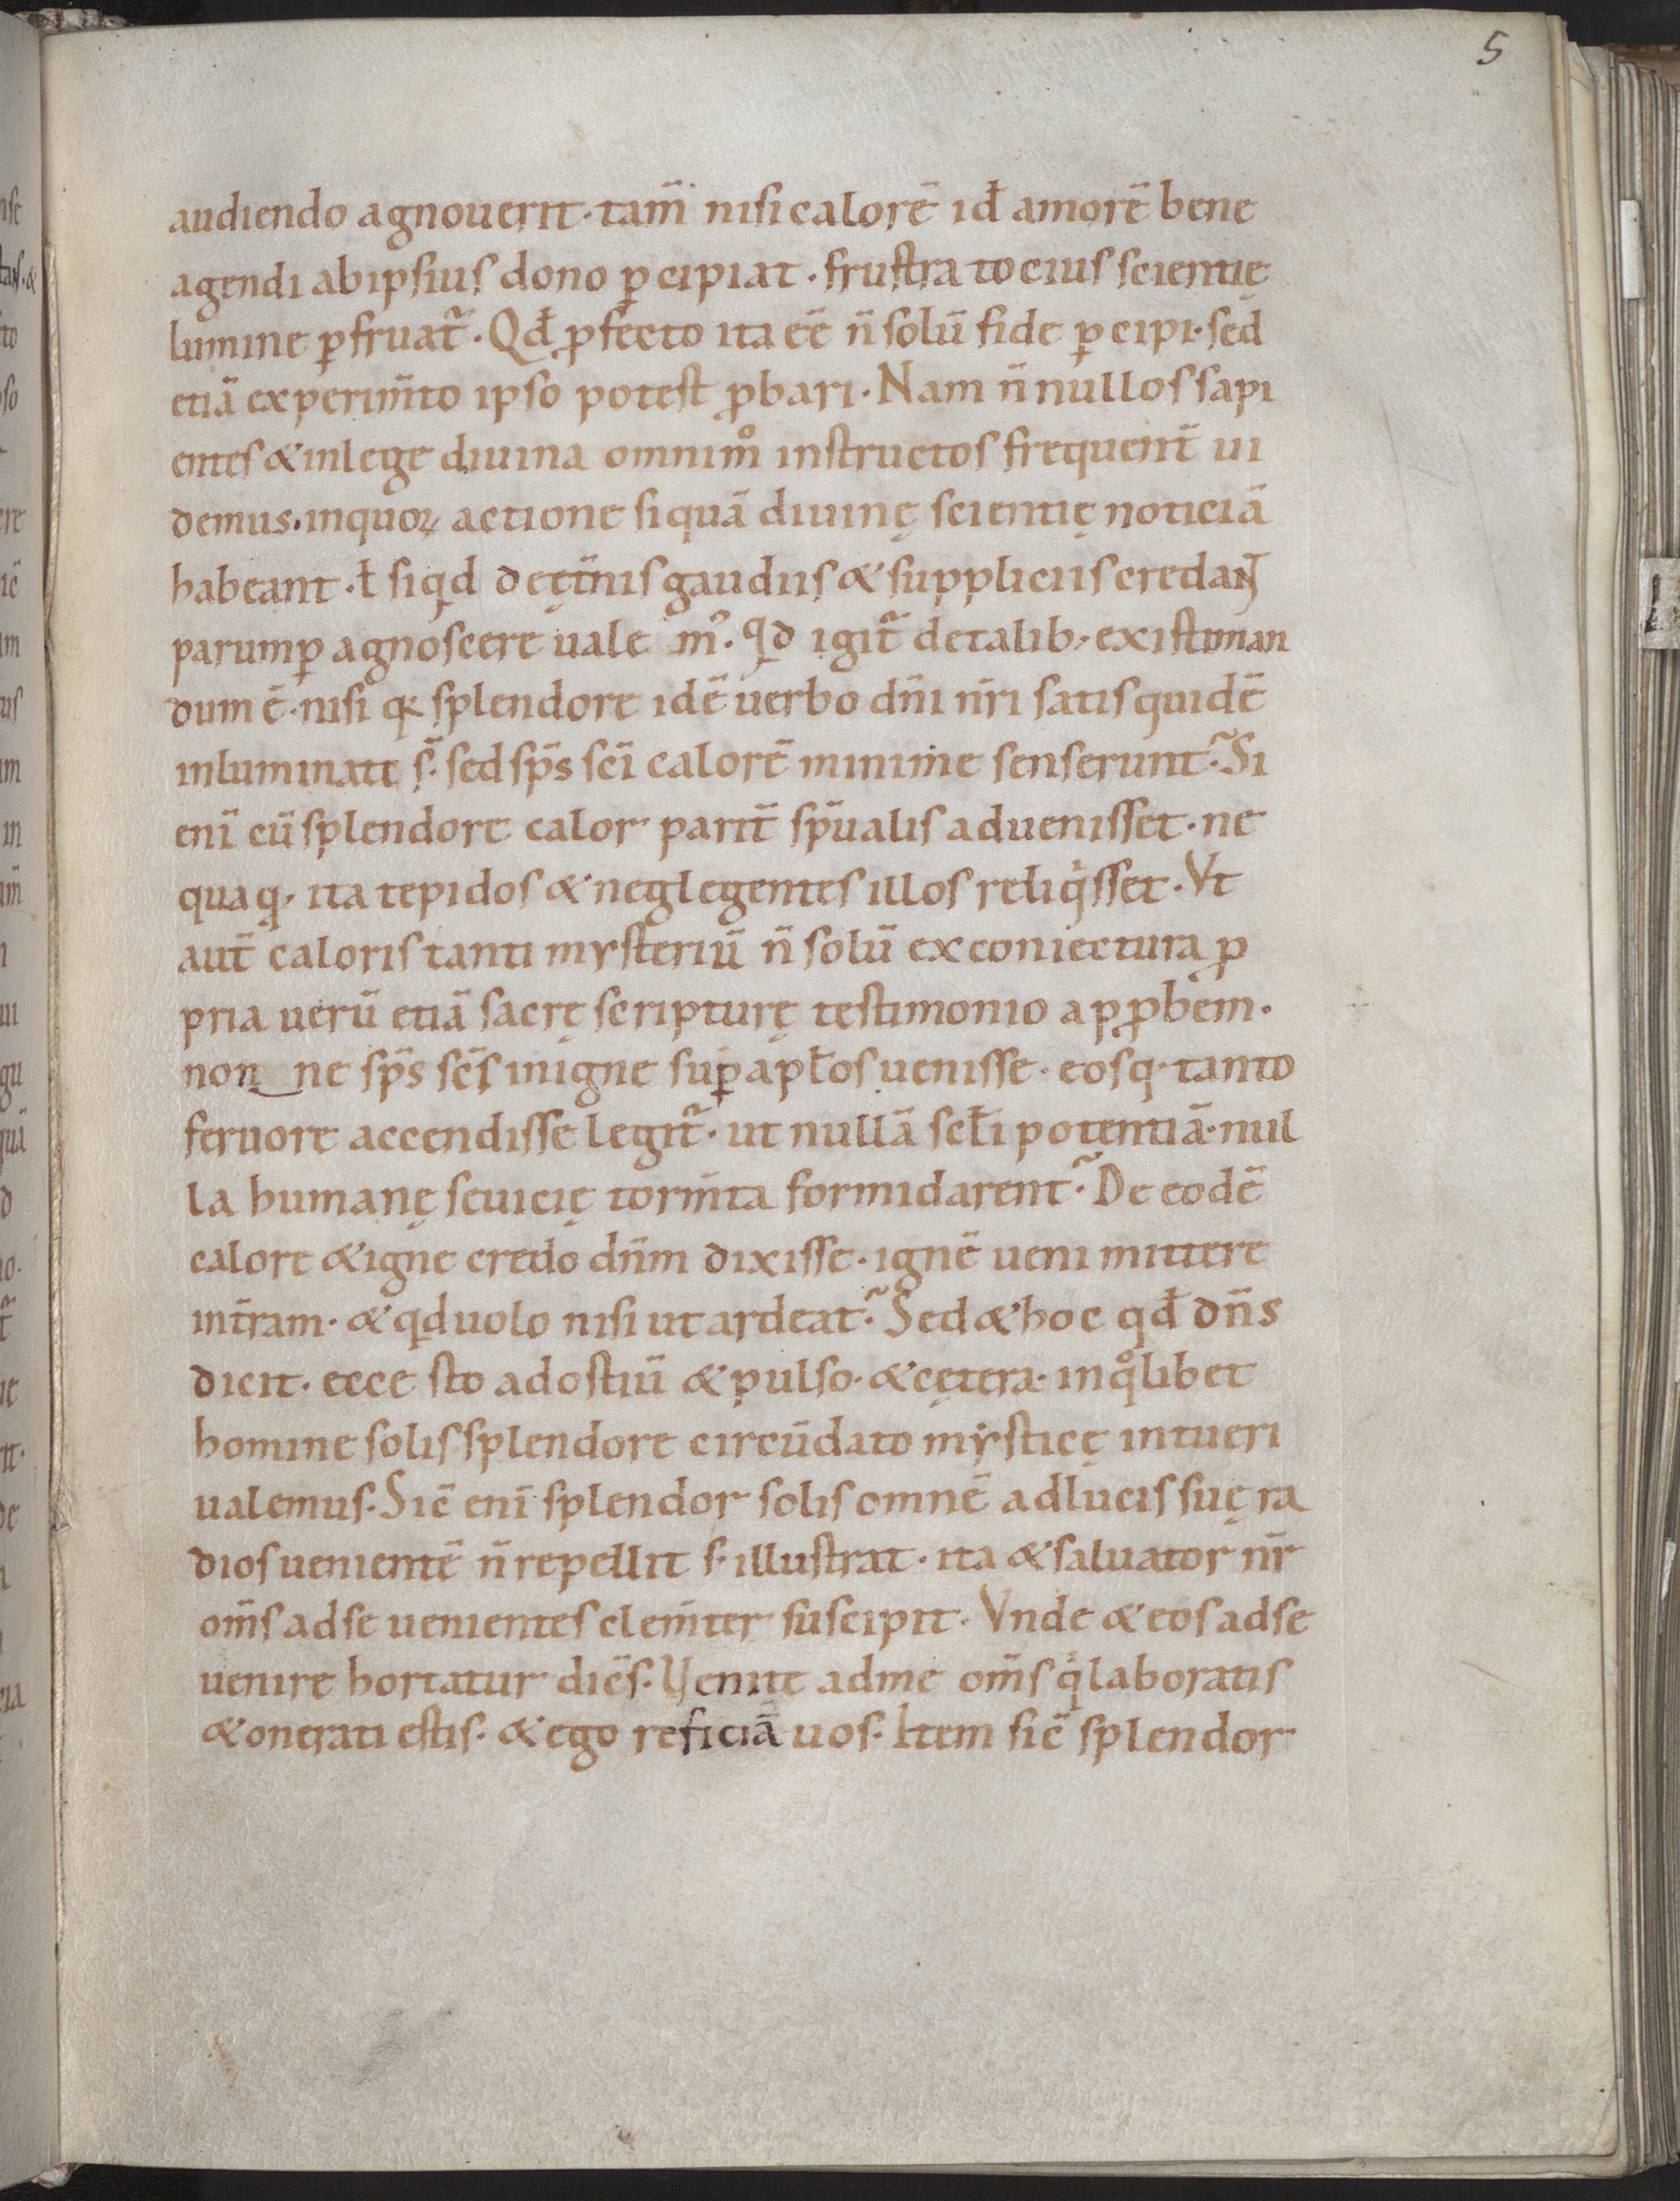 5
audiendo agnouerit · tam̄ nisi calorē id̄ amorē bene
agendi ab ipsius dono ꝑcipiat · frustra tocius scientię
lumine ꝑfruat᷑ · Qd̄ ꝓfecto ita eē n̄ solū fide ꝑcipi · sed
etiā experim̄to ipso potest ꝓbari · Nam n̄nullos sapi
entes & in lege diuina omnim̊ instructos frequent̄ ui
demus · in quoꝝ actione si quā diuinę scientię noticiā
habeant · ł siqd de ęt̄nis gaudiis & suppliciis credant
parumꝑ agnoscere uale m᷒ · Qd igit᷑ de talib; existiman
dum ē · nisi qꝫ splendore idē uerbo dn̄i nr̄i satis quidē
inluminati s̄ · sed sp̄s sc̄i calorē minime senserunt᷑ · Si
enī cū splendore calor parit̄ sp̄ualis aduenisset · ne
quaq; ita tepidos & neglegentes illos reliq̍sset · Vt
aut̄ caloris tanti mysteriū n̄ solū ex coniectura ꝓ
pria uerū etiā sacrę scripturę testimonio apꝓbem ·
non ne sp̄s sc̄s in igne suꝑ apłos uenisse · eosq; tanto
feruore accendisse legit᷑ · ut nullā scłi potentiā · nul
la humanę seuicię torm̄ta formidarent᷑ · De eodē
calore & igne credo dn̄m dixisse · ignē ueni mittere
in t̄ram · & qd uolo nisi ut ardeat᷑ · Sed & hoc qd̄ dn̄s
dicit · ecce sto ad ostiū & pulso · & cętera · in q̊libet
homine solis splendore circūdato mysticę intueri
ualemus · Sic̄ enī splendor solis omnē ad lucis suę ra
dios uenientē n̄ repellit s· illustrat · ita & saluator nr̄
om̄s ad se uenientes clem̄ter suscipit · Vnde & eos ad se
uenire hortatur dic̄s · Uenite ad me om̄s q̍ laboratis
& onerati estis · & ego reficiā uos · Item sic̄ splendor